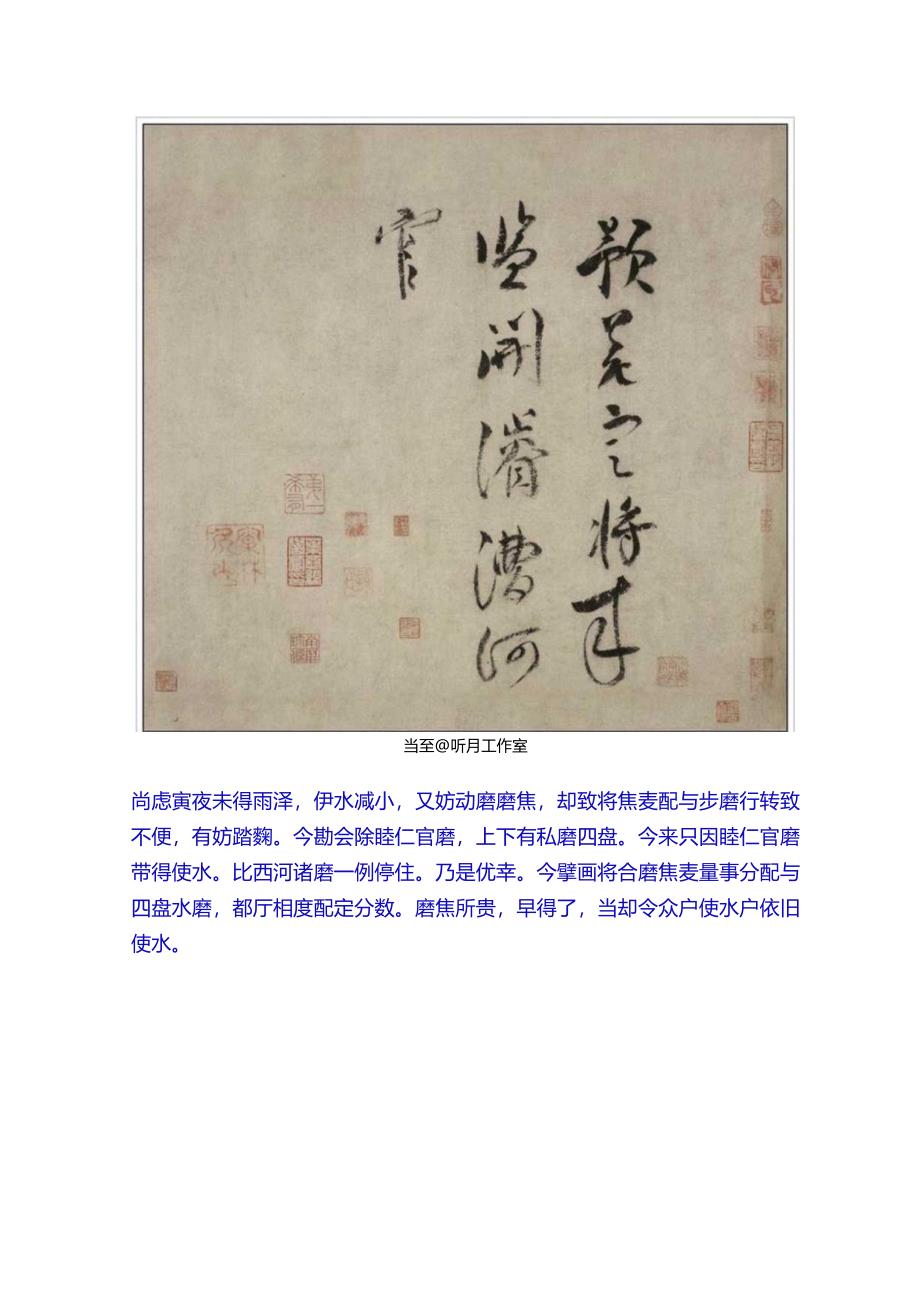 預差定將來
監開濬漕河
官
当至@听月工作室
尚虑寅夜未得雨泽，伊水减小，又妨动磨磨焦，却致将焦麦配与步磨行转致
不便，有妨踏麹。今勘会除睦仁官磨，上下有私磨四盘。今来只因睦仁官磨
带得使水。比西河诸磨一例停住。乃是优幸。今擘画将合磨焦麦量事分配与
四盘水磨，都厅相度配定分数。磨焦所贵，早得了，当却令众户使水户依旧
使水。